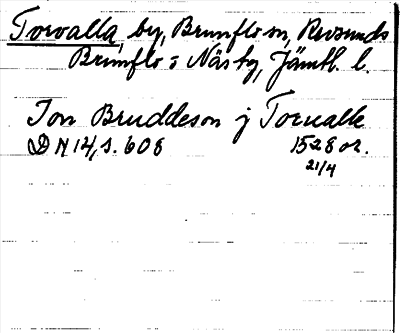 Torvalla, by, Brunflo sn, Revsunds
Brunflo o Näs tg, Jämtl. l.
Jon Bruddeson j Torualle
DN 14, s. 608 1528 or.
21/4